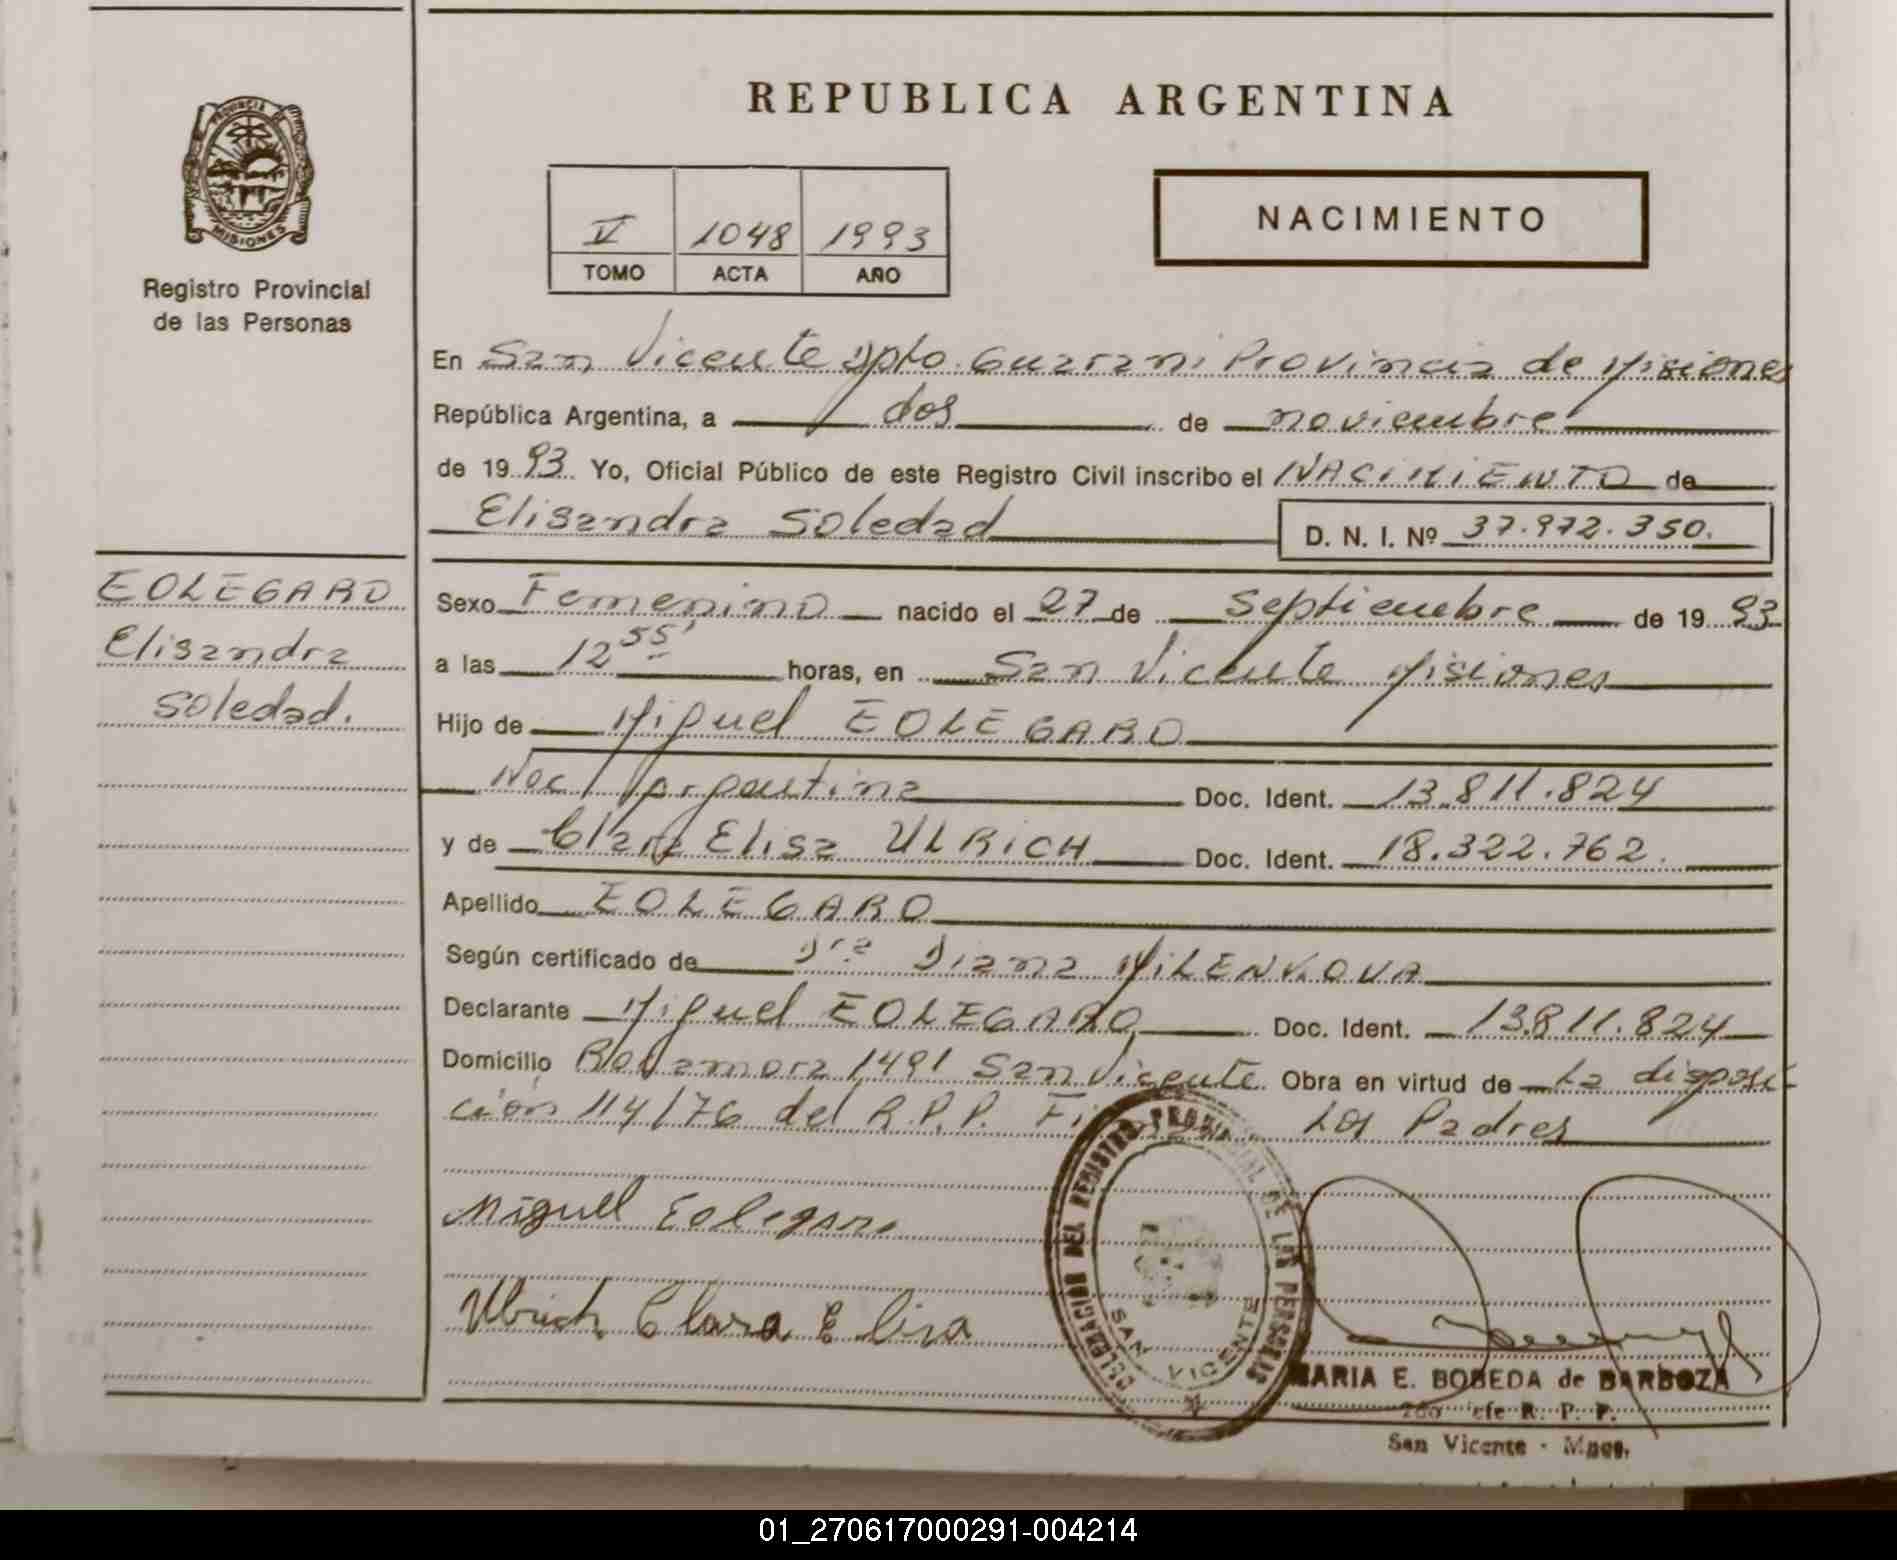 REPUBLICA ARGENTINA
PROVINCIA DE
MISIONES
Registro Provincial
de las Personas
V 1048 1993
TOMO ACTA AÑO
NACIMIENTO
En San Vicente Dpto. Guarani Provincia de Misiones
República Argentina, a dos de noviembre
de 1993 Yo, Oficial Público de este Registro Civil inscribo el NACIMIENTO de
Elisandra Soledad D. N. I. Nº 37.972.350.
EOLEGARO
Elisandra
Soledad.
Sexo Femenino nacido el 27 de Septiembre de 1993
a las 12 55' horas, en San Vicente Misiones
Hijo de Miguel EOLEGARO
Nac Argentina Doc. Ident. 13.811.824
y de Clara Elisa ULRICH Doc. Ident. 18.322.762.
Apellido EOLEGARO
Según certificado de Dra Diana MILENKOVA
Declarante Miguel EOLEGARO Doc. Ident. 13.811.824
Domicilio 1491 San Vicente Obra en virtud de La disposi-
ción 114/76 del R.P.P. Los Padres
Miguel Eolegaro
Ulrich Clara Elisa
DELEGACION DEL REGISTRO PROVINCIAL DE LAS PERSONAS
SAN VICENTE
MARIA E. BOBEDA de BARBOZA
2do Jefe R. P. P.
San Vicente - Mnes.
01_270617000291-004214